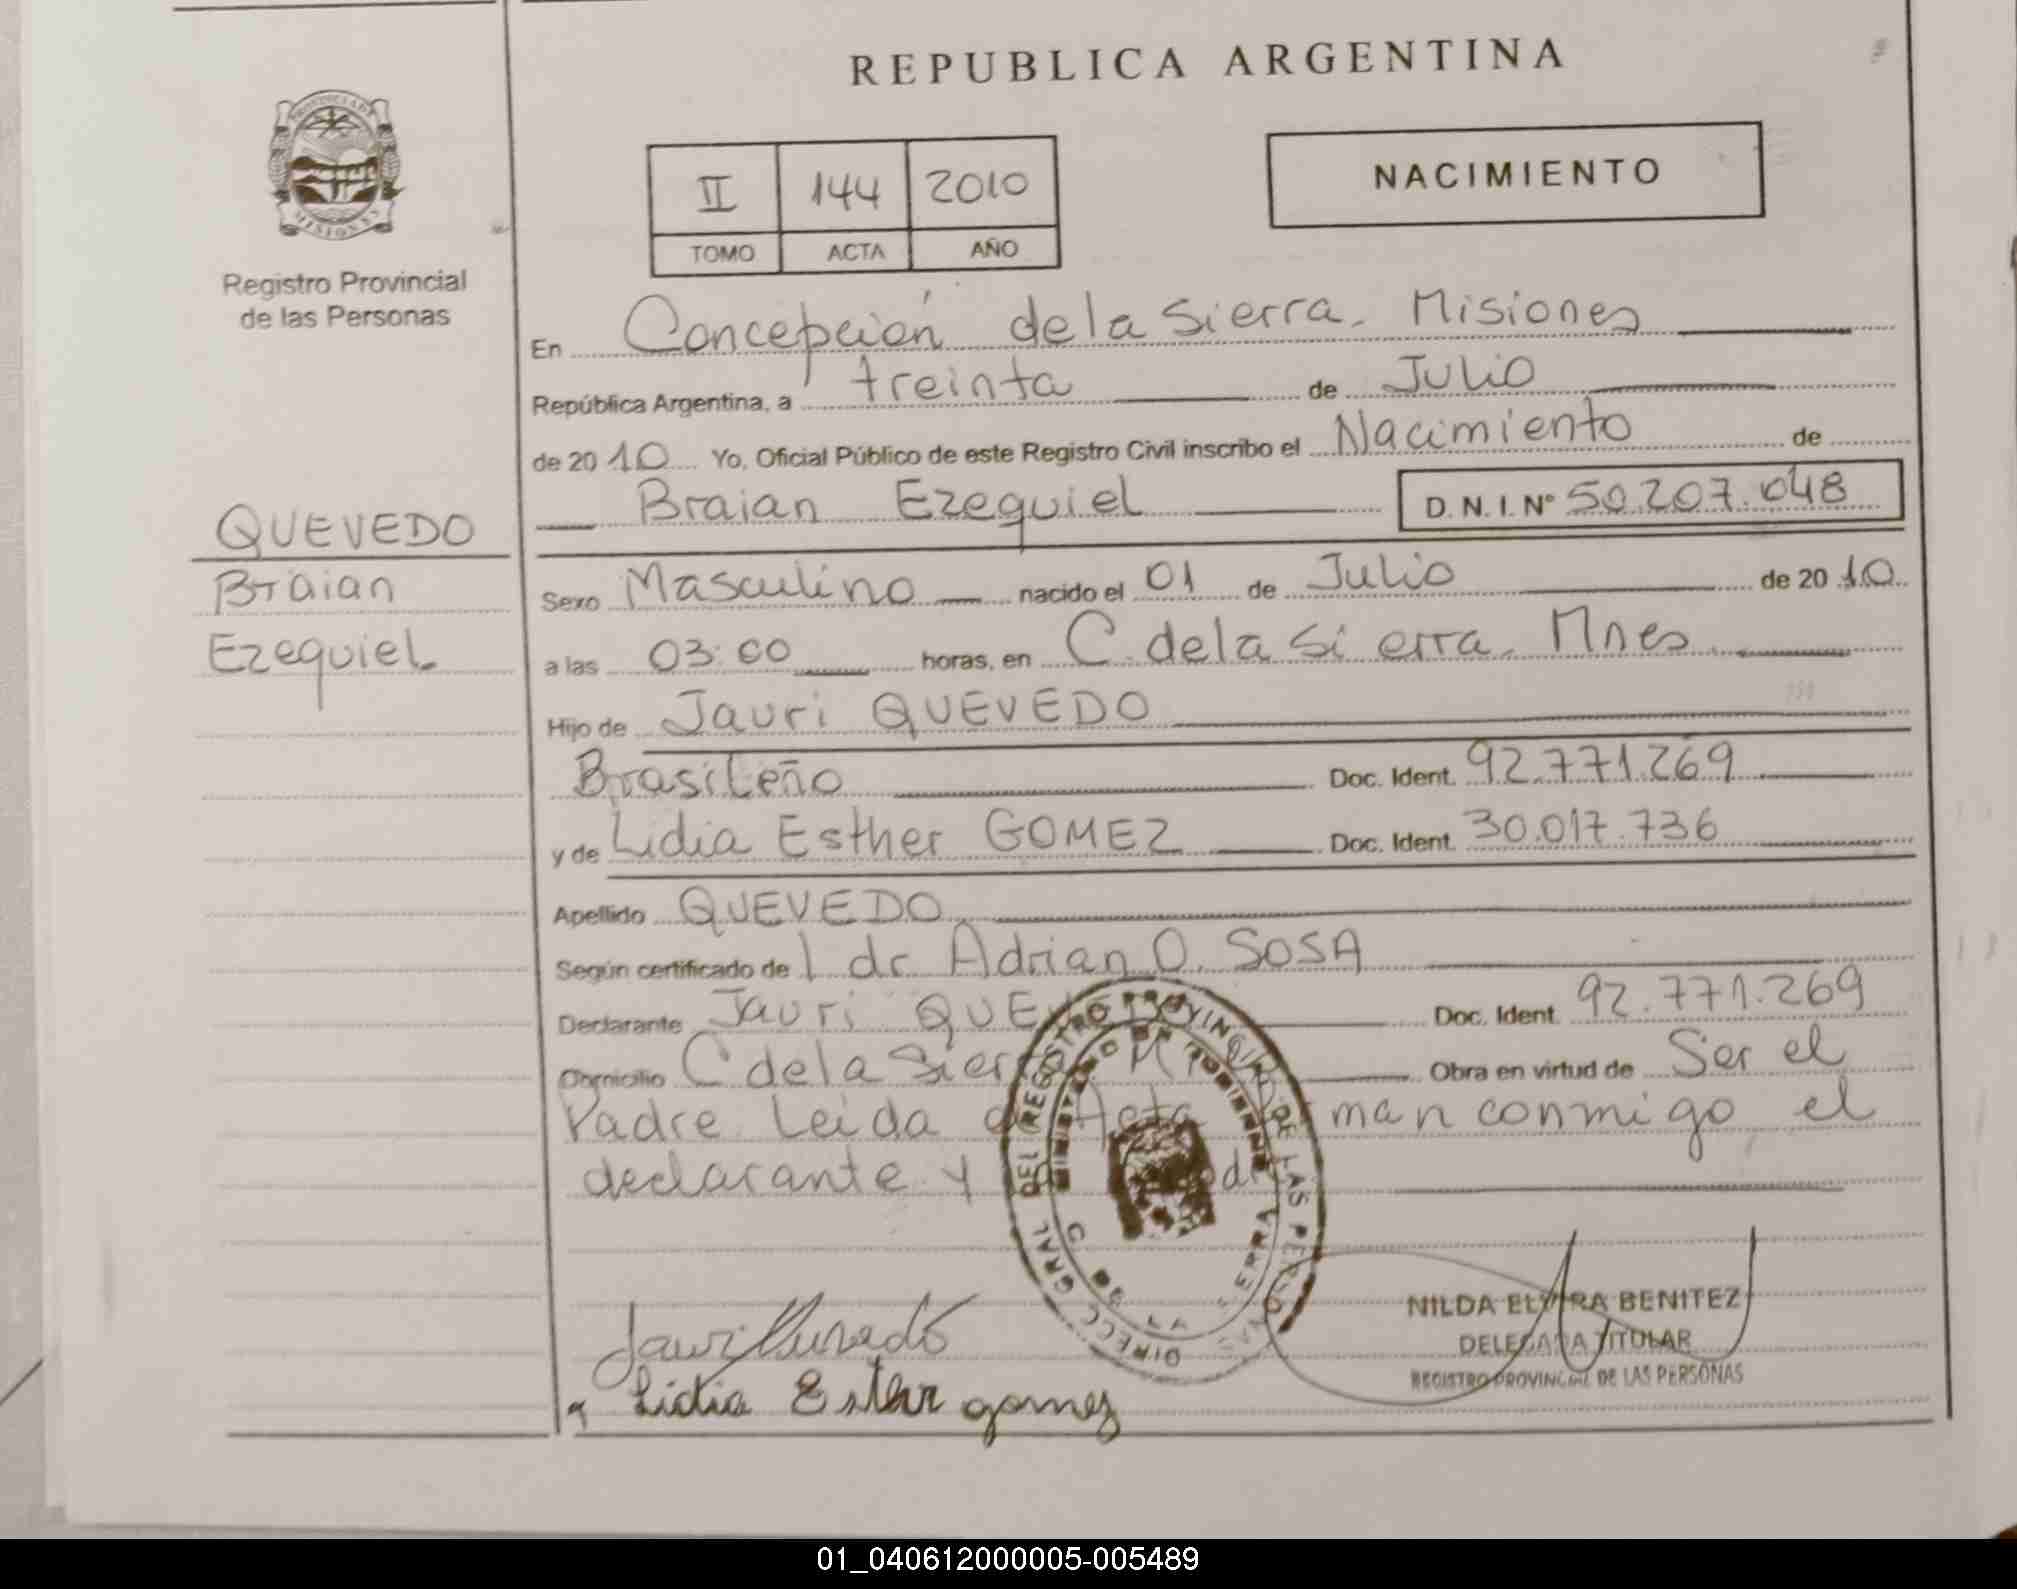 REPUBLICA ARGENTINA
PROVINCIA DE MISIONES
Registro Provincial
de las Personas
II 144 2010
TOMO ACTA AÑO
NACIMIENTO
En Concepción de la Sierra. Misiones
República Argentina, a treinta de Julio
de 2010 Yo, Oficial Público de este Registro Civil inscribo el Nacimiento de
Braian Ezequiel D.N.I. Nº 50.207.048
QUEVEDO
Braian
Ezequiel
Sexo Masculino nacido el 01 de Julio de 2010
a las 03:00 horas, en C. de la Sierra. Mnes
Hijo de Jauri QUEVEDO
Brasileño Doc. Ident. 92.771.269
y de Lidia Esther GOMEZ Doc. Ident. 30.017.736
Apellido QUEVEDO
Según certificado de l dr Adrian O. SOSA
Declarante Jauri QUE Doc. Ident. 92.771.269
Domicilio C de la Sierra Obra en virtud de Ser el
Padre Leida Acta man conmigo, el
declarante y
DIRECC GRAL DEL REGISTRO PROVINCIAL DE LAS PERSONAS
NILDA ELVIRA BENITEZ
DELEGADA TITULAR
REGISTRO PROVINCIAL DE LAS PERSONAS
Lidia Ester gomez
01_040612000005-005489